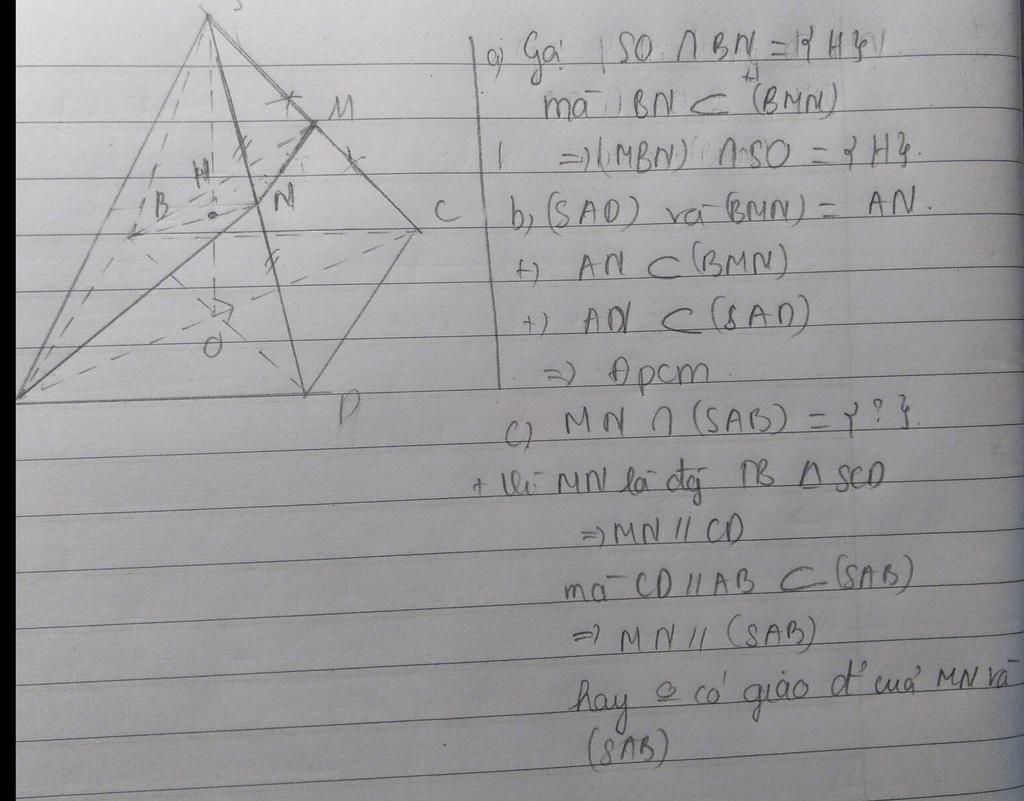 S
M
H
B
N
C
O
D
a) Gọi SO ∩ BN = {H}
mà BN ⊂ (BMN)
=> (MBN) ∩ SO = {H}.
b, (SAD) và (BMN) = AN.
+) AN ⊂ (BMN)
+) AN ⊂ (SAD)
=> Đpcm
c) MN ∩ (SAB) = {?}.
+ Vì MN là đg TB Δ SCD
=> MN // CD
mà CD // AB ⊂ (SAB)
=> MN // (SAB)
hay có giao đ' của MN và
(SAB)